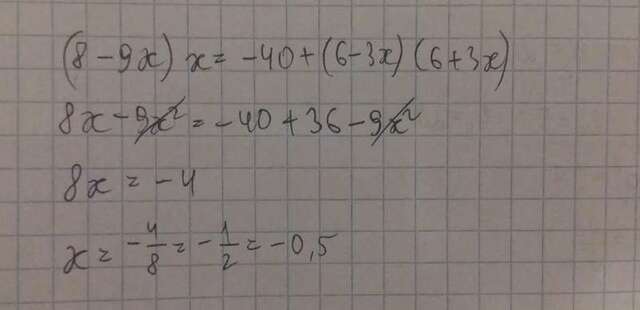 (8 - 9x) x = -40 + (6 - 3x) (6 + 3x)
8x - 9x² = -40 + 36 - 9x²
8x = -4
x = -4/8 = -1/2 = -0,5